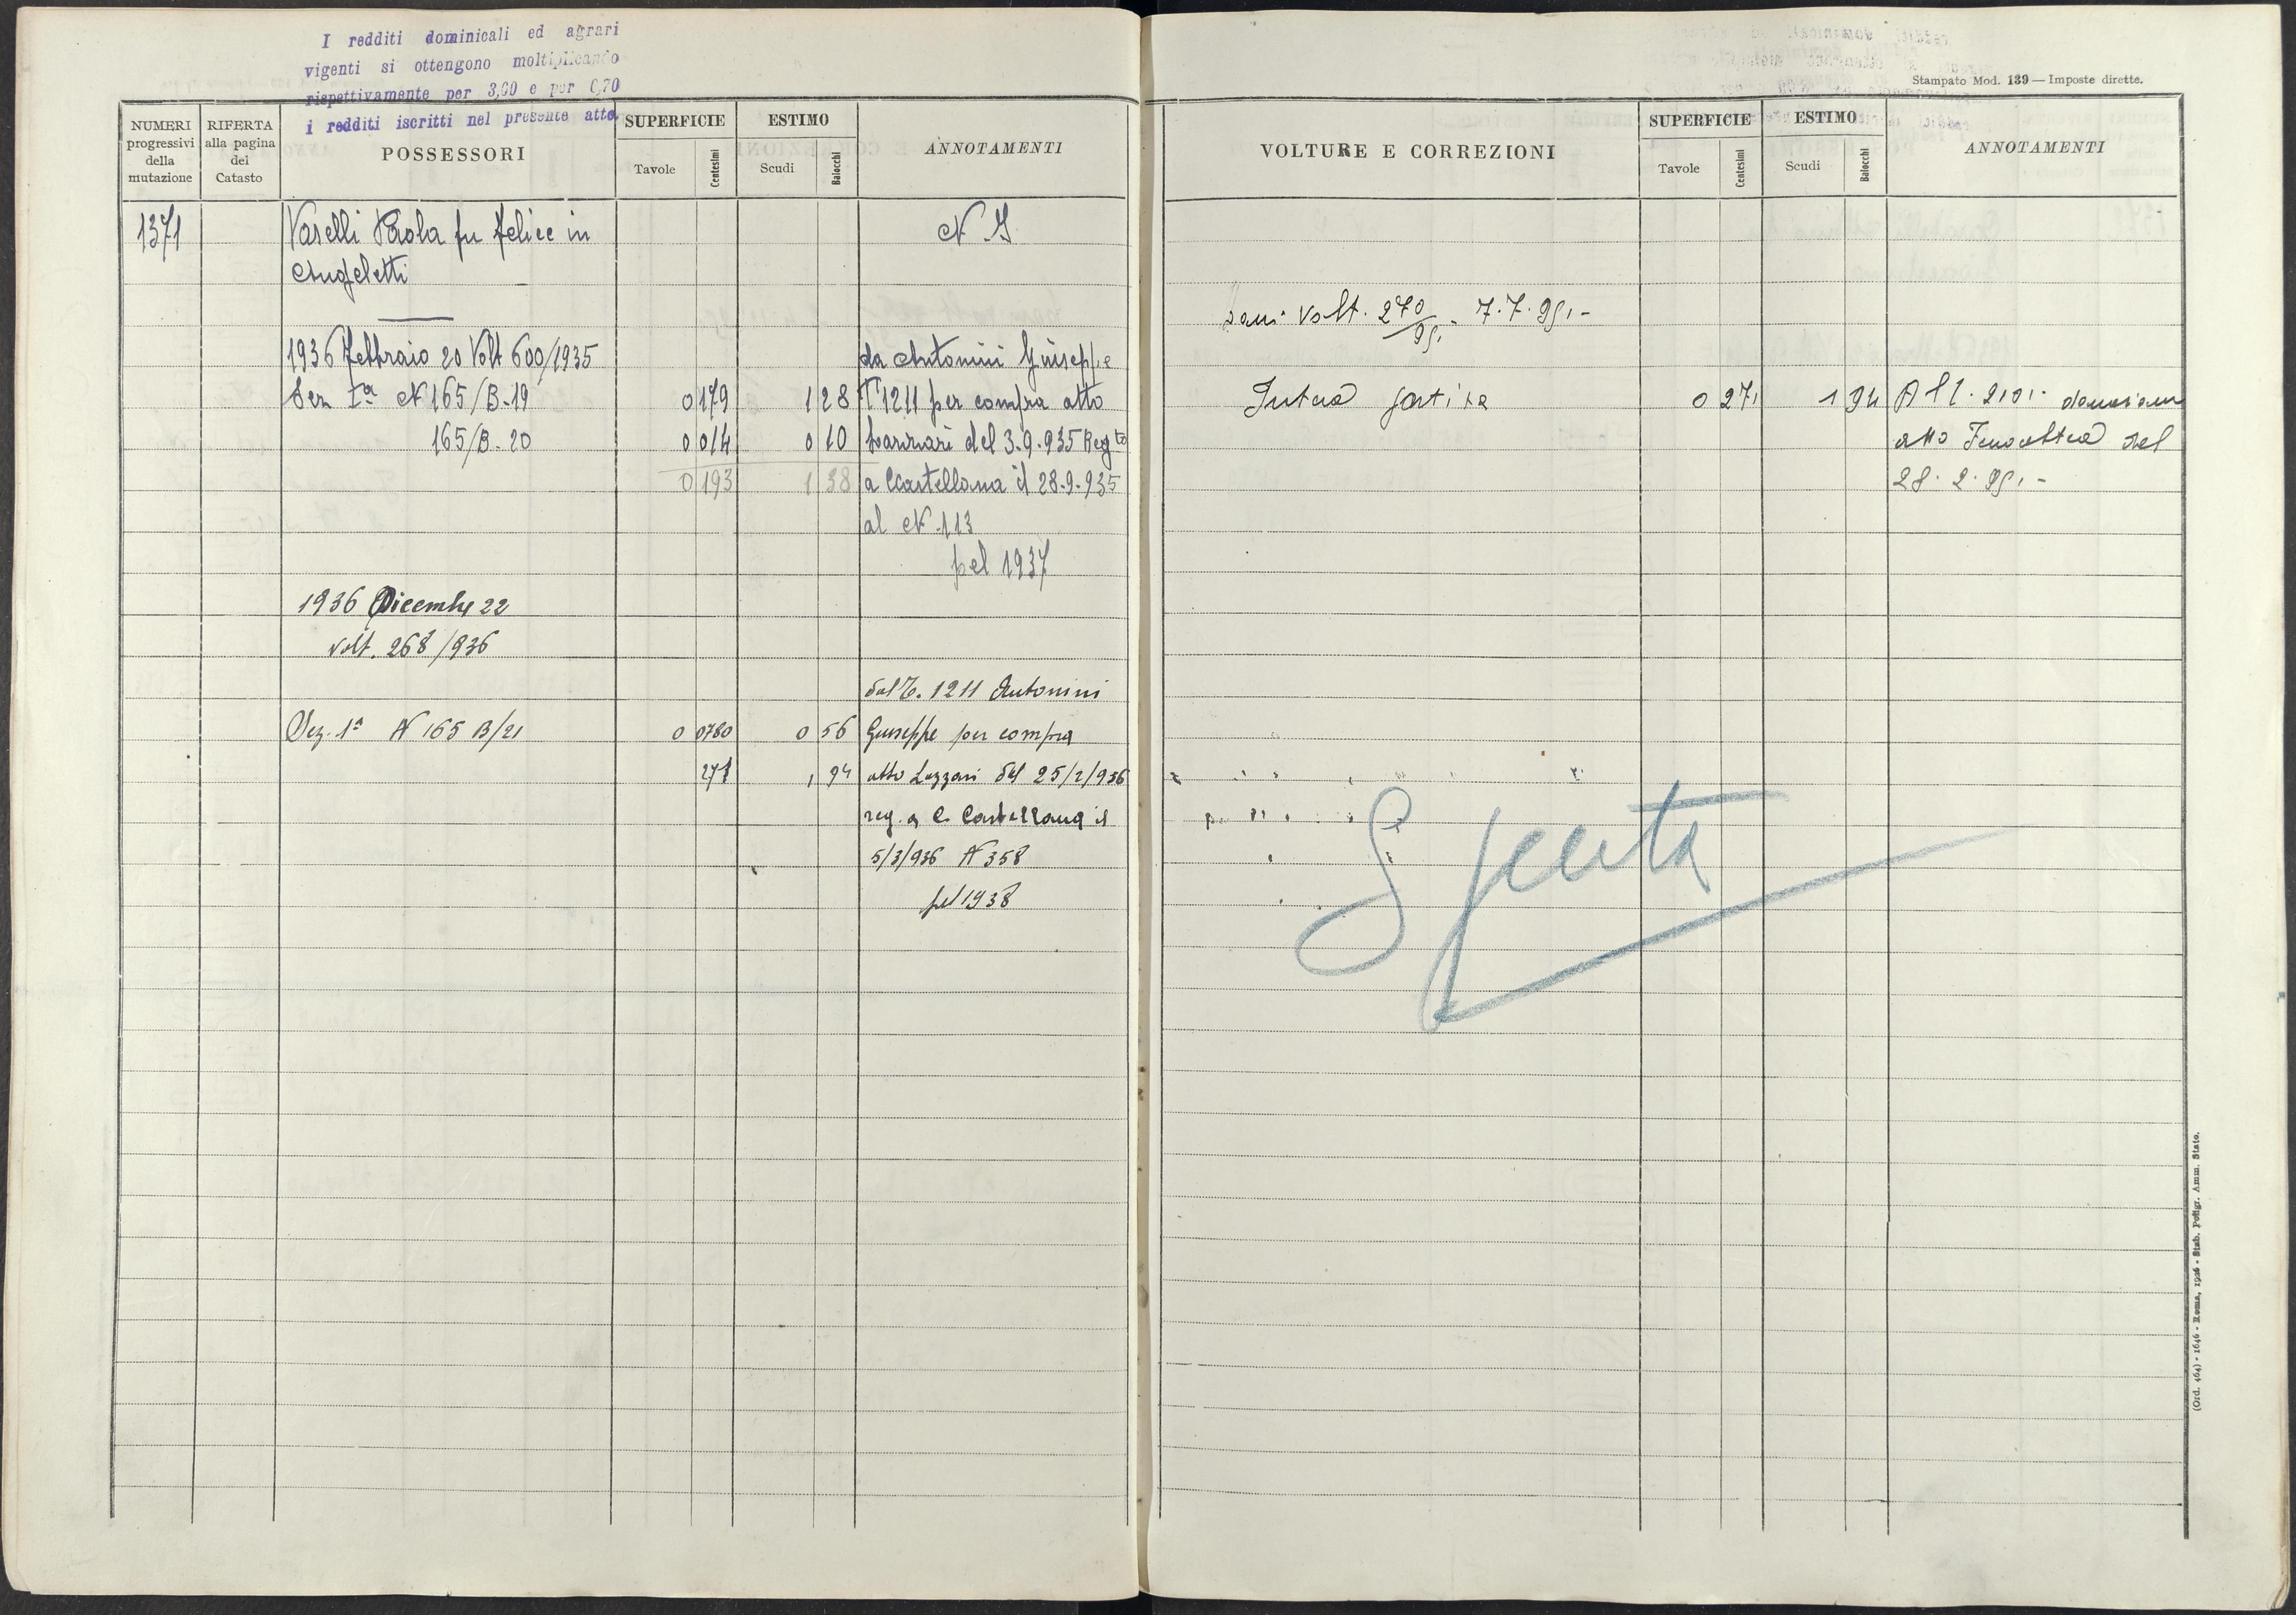 I redditi dominicali ed agrari
vigenti si ottengono moltiplicando
rispettivamente per 3,00 e per 0,70
i redditi iscritti nel presente atto.
NUMERI progressivi della mutazione
RIFERTA alla pagina del Catasto
POSSESSORI
SUPERFICIE
Tavole Centesimi
ESTIMO
Scudi Baiocchi
ANNOTAMENTI
1371 Varelli Paola fu Felice in N. G
Angeletti
1936 Febbraio 20 Volt 600/1935 da Antonini Giuseppe
Sez Iª N 165/B-19 0 179 1 28 T 1211 per compra atto
165/B-20 0 014 0 10 del 3-9-935 Regto
0 193 1 38 a CCastellana il 28-9-935
al N-113
pel 1937
1936 Dicembre 22
volt. 268/936
dal T. 1211 Antonini
Sez. 1ª N 165 B/21 0 0780 0 56 Giuseppe per compra
271 1 94 atto Lazzari del 25/2/936
reg. a C. Castellana il
5/3/936 N 358
pel 1938
Stampato Mod. 139 — Imposte dirette.
VOLTURE E CORREZIONI
SUPERFICIE
Tavole Centesimi
ESTIMO
Scudi Baiocchi
ANNOTAMENTI
volt. 270
Intera partita 0 271 1 94 donazione
atto del
Spenta
(Ord. 464) - 1646 - Roma, 1926 - Stab. Poligr. Amm. Stato.